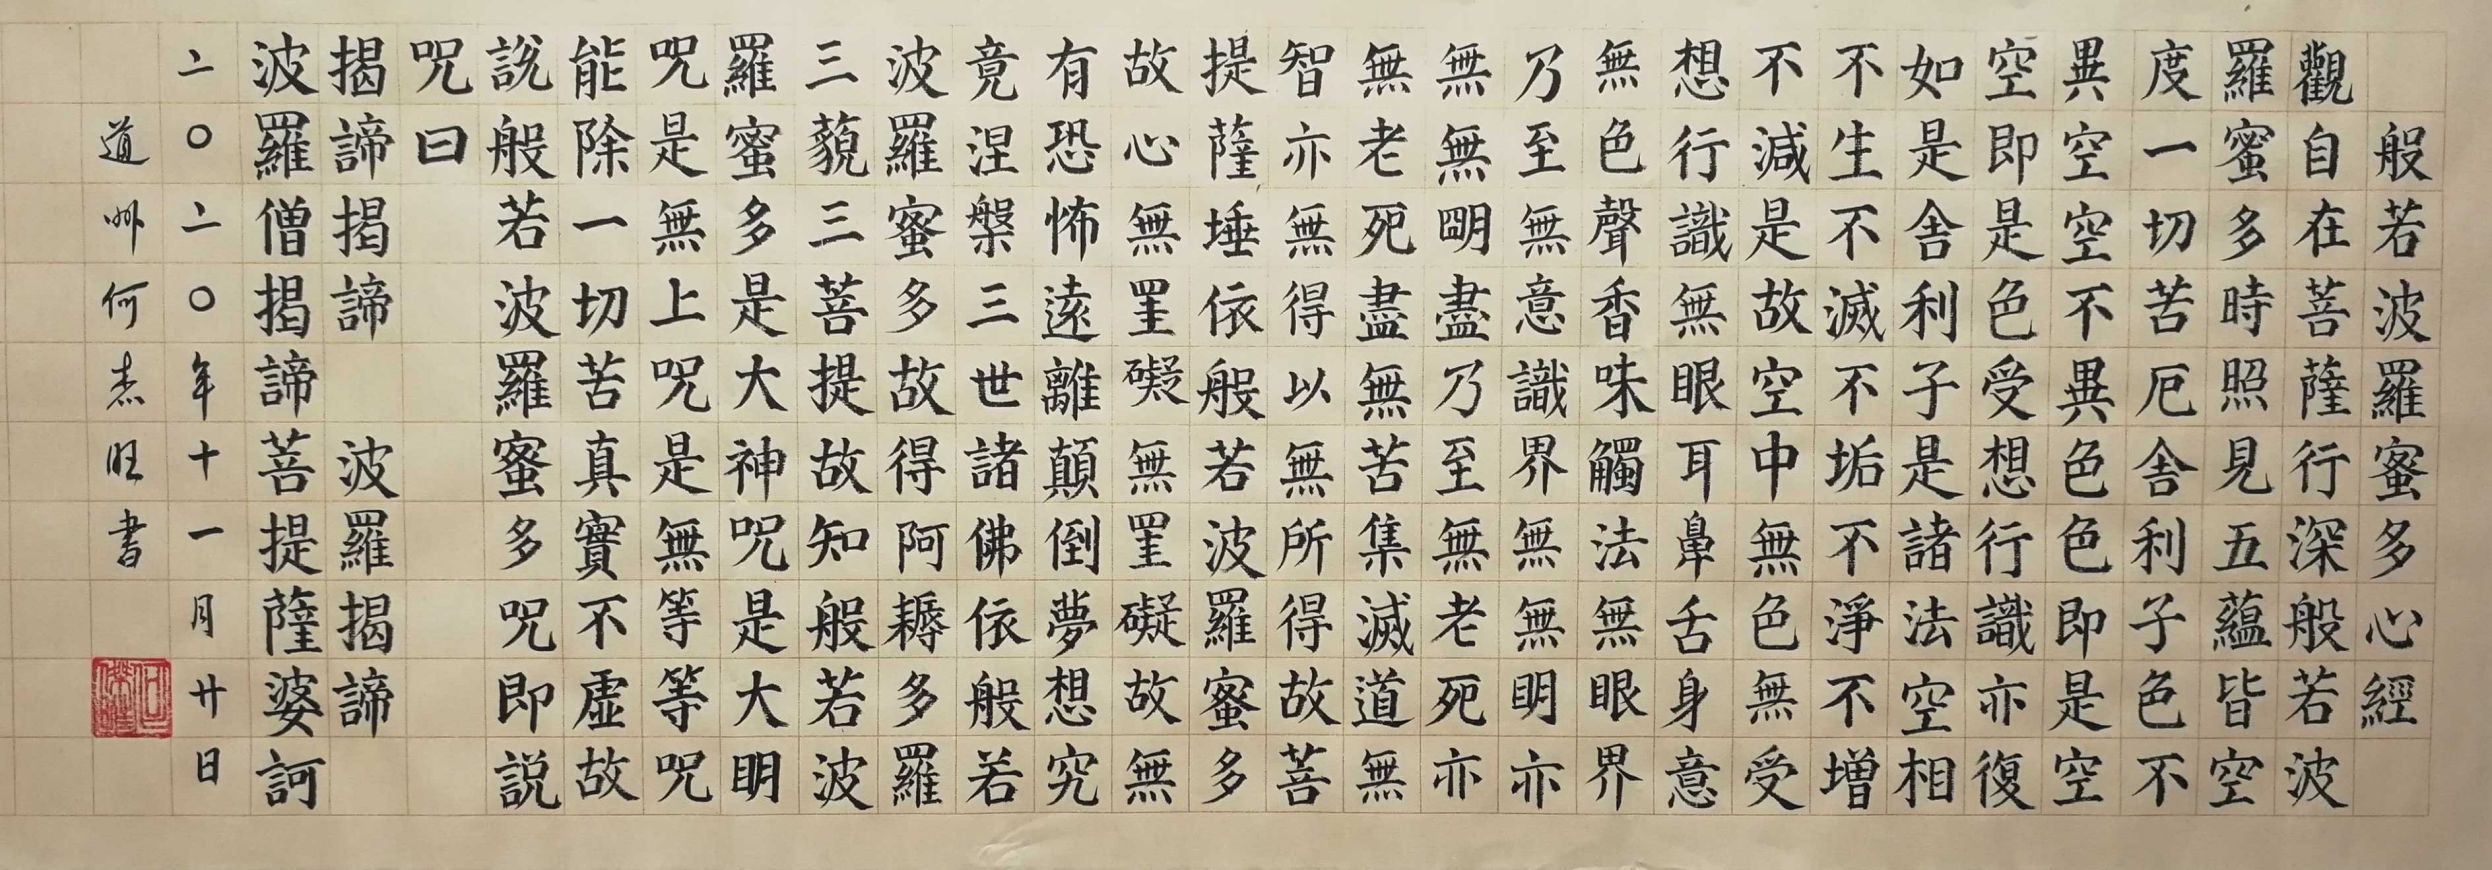 般若波羅蜜多心經
觀自在菩薩行深般若波
羅蜜多時照見五蘊皆空
度一切苦厄舍利子色不
異空空不異色色即是空
空即是色受想行識亦復
如是舍利子是諸法空相
不生不滅不垢不淨不增
不減是故空中無色無受
想行識無眼耳鼻舌身意
無色聲香味觸法無眼界
乃至無意識界無無眀亦
無無朙盡乃至無老死亦
無老死盡無苦集滅道無
智亦無得以無所得故菩
提薩埵依般若波羅蜜多
故心無罣礙無罣礙故無
有恐怖遠離顛倒夢想究
竟涅槃三世諸佛依般若
波羅蜜多故得阿耨多羅
三藐三菩提故知般若波
羅蜜多是大神咒是大眀
咒是無上咒是無等等咒
能除一切苦真實不虛故
説般若波羅蜜多咒即説
咒曰
揭諦揭諦 波羅揭諦
波羅僧揭諦菩提薩婆訶
二〇二〇年十一月廿日
道州何杰旺書